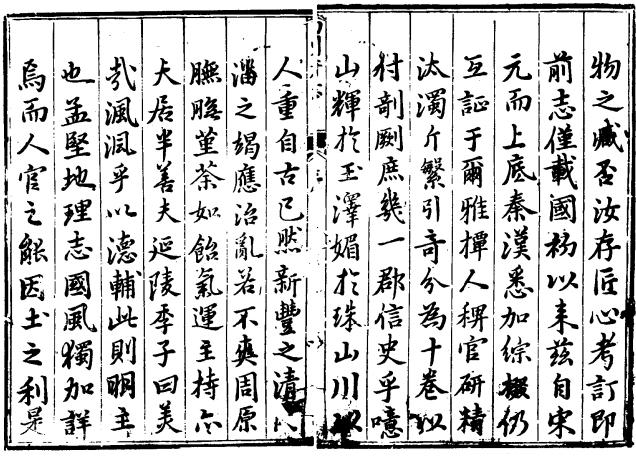 物之臧否汝存匠心考訂即
前志僅載國初以来茲自宋
元而上底秦漢悉加綜掇仍
互証于爾雅撢人稗官研精
汰濁斤繁引奇分為十卷以
付剞劂庶幾一郡信史乎噫
山輝於玉澤媚於珠山川以
人重自古已然新豐之清
之竭應治亂若不爽周原
膴膴菫荼如飴氣運主持亦
大居半善夫延陵季子曰美
哉渢渢乎以德輔此則明主
也孟堅地理志國風獨加詳
焉而人官之能因土之利是